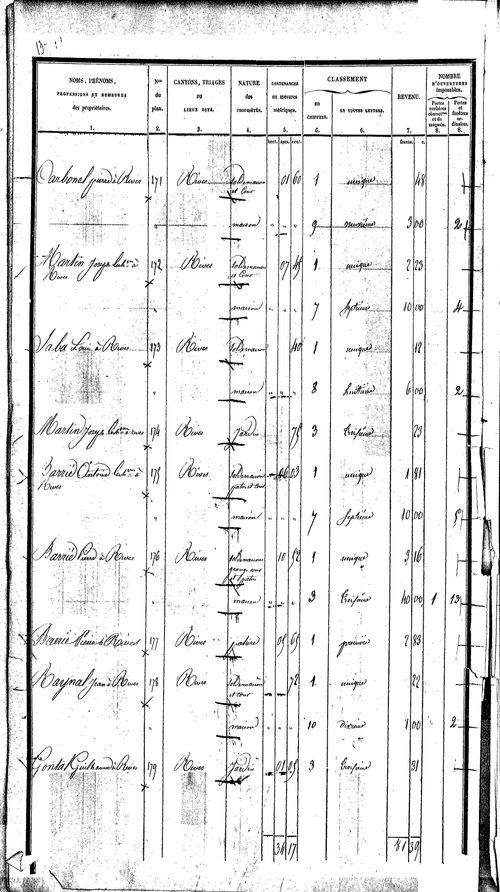 NOMS, PRÉNOMS, PROFESSIONS ET DEMEURES des propriétaires. 1.
Nos du plan. 2.
CANTONS, TRIAGES ou LIEUX DITS. 3.
NATURE des propriétés. 4.
CONTENANCES en mesures métriques. 5. hect. ares. cent.
CLASSEMENT
en CHIFFRES. 6.
EN TOUTES LETTRES. 6.
REVENU. 7. francs. c.
NOMBRE D'OUVERTURES imposables.
Portes cochères, charret.res et de magasin. 8.
Portes et fenêtres ordinaires. 8.
Carbonel pierre à Rives 171 Rives sol de maison et Cour 01 60 1 unique 48
" maison " " " 9 neuvième 3 00 2
Martin Joseph à Rives 172 Rives sol de maison et Cour 07 45 1 unique 2 23
" maison " " " 7 septième 10 00 4
Saba Louis à Rives 173 Rives sol de maison 40 1 unique 12
" maison " " " 8 huitième 6 00 2
Martin Joseph à Rives 174 Rives Jardin 75 3 troisième 23
Barrié Antoine à Rives 175 Rives sol de maison patus et cour 06 03 1 unique 1 81
" maison " " " 7 septième 10 00 5
Barrié Pierre à Rives 176 Rives sol de maison grange et patus 10 52 1 unique 3 16
" maison " " " 3 troisième 40 00 1 13
Barrié Pierre à Rives 177 Rives pature 05 65 1 première 2 83
Raynal Jean à Rives 178 Rives sol de maison et cour 72 1 unique 22
" maison " " " 10 dixième 1 00 2
Gontal Guilhaume à Rives 179 Rives Jardin 01 05 3 troisième 31
34 17 81 39